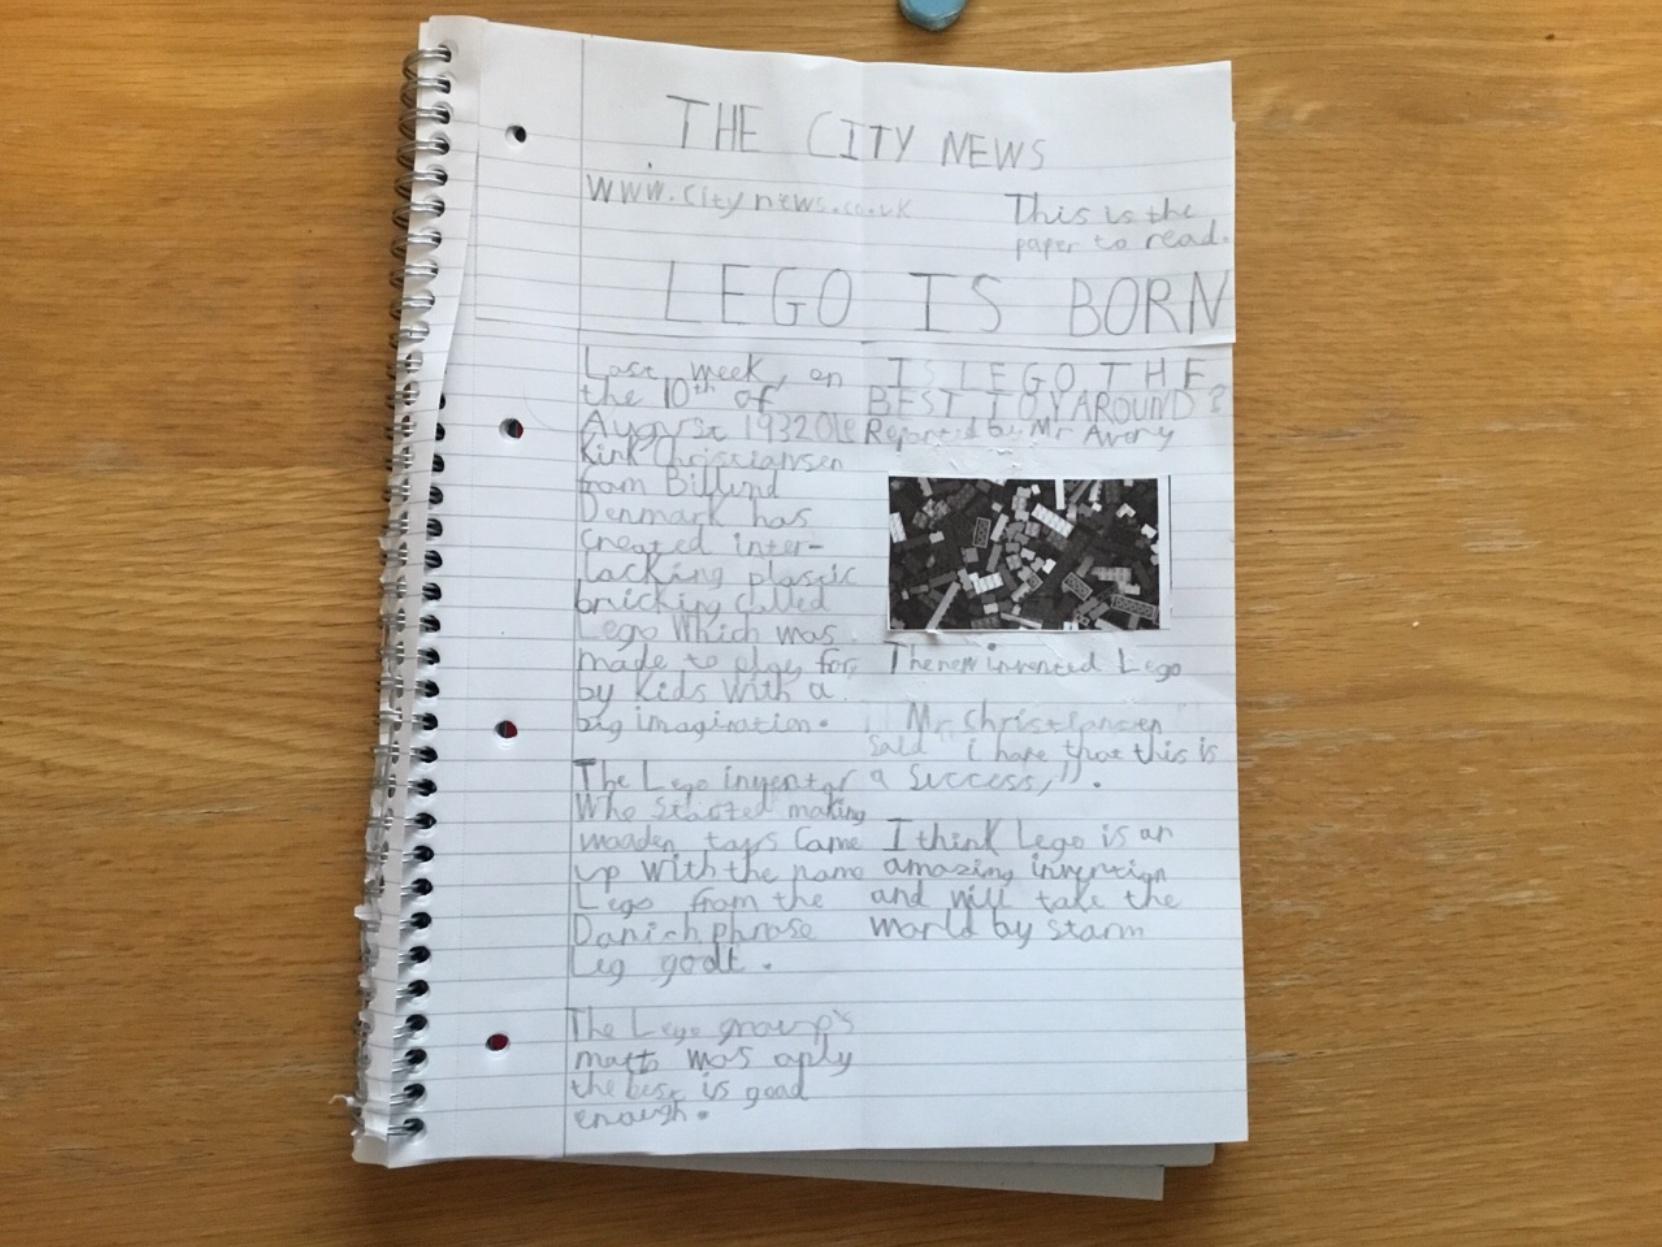 THE CITY NEWS
www.citynews.co.uk
This is the
paper to read.
LEGO IS BORN
Last week, on
the 10th of
August 1932 Ole
Kirk Christiansen
from Billund
Denmark has
created inter-
locking plastic
bricking called
Lego Which was
made to for
by Kids With a
big imagination.
The Lego inventor
Who started making
wooden toys Came
up With the name
Lego from the
Danich phrase
Leg godt.
The Lego group's
motto was only
the best is good
enough.
IS LEGO THE
BEST TOY AROUND?
Reported by Mr Avery
The new invented Lego
Mr Christiansen
said "i hope that this is
a Success,".
I think Lego is an
amazing invention
and will take the
world by storm